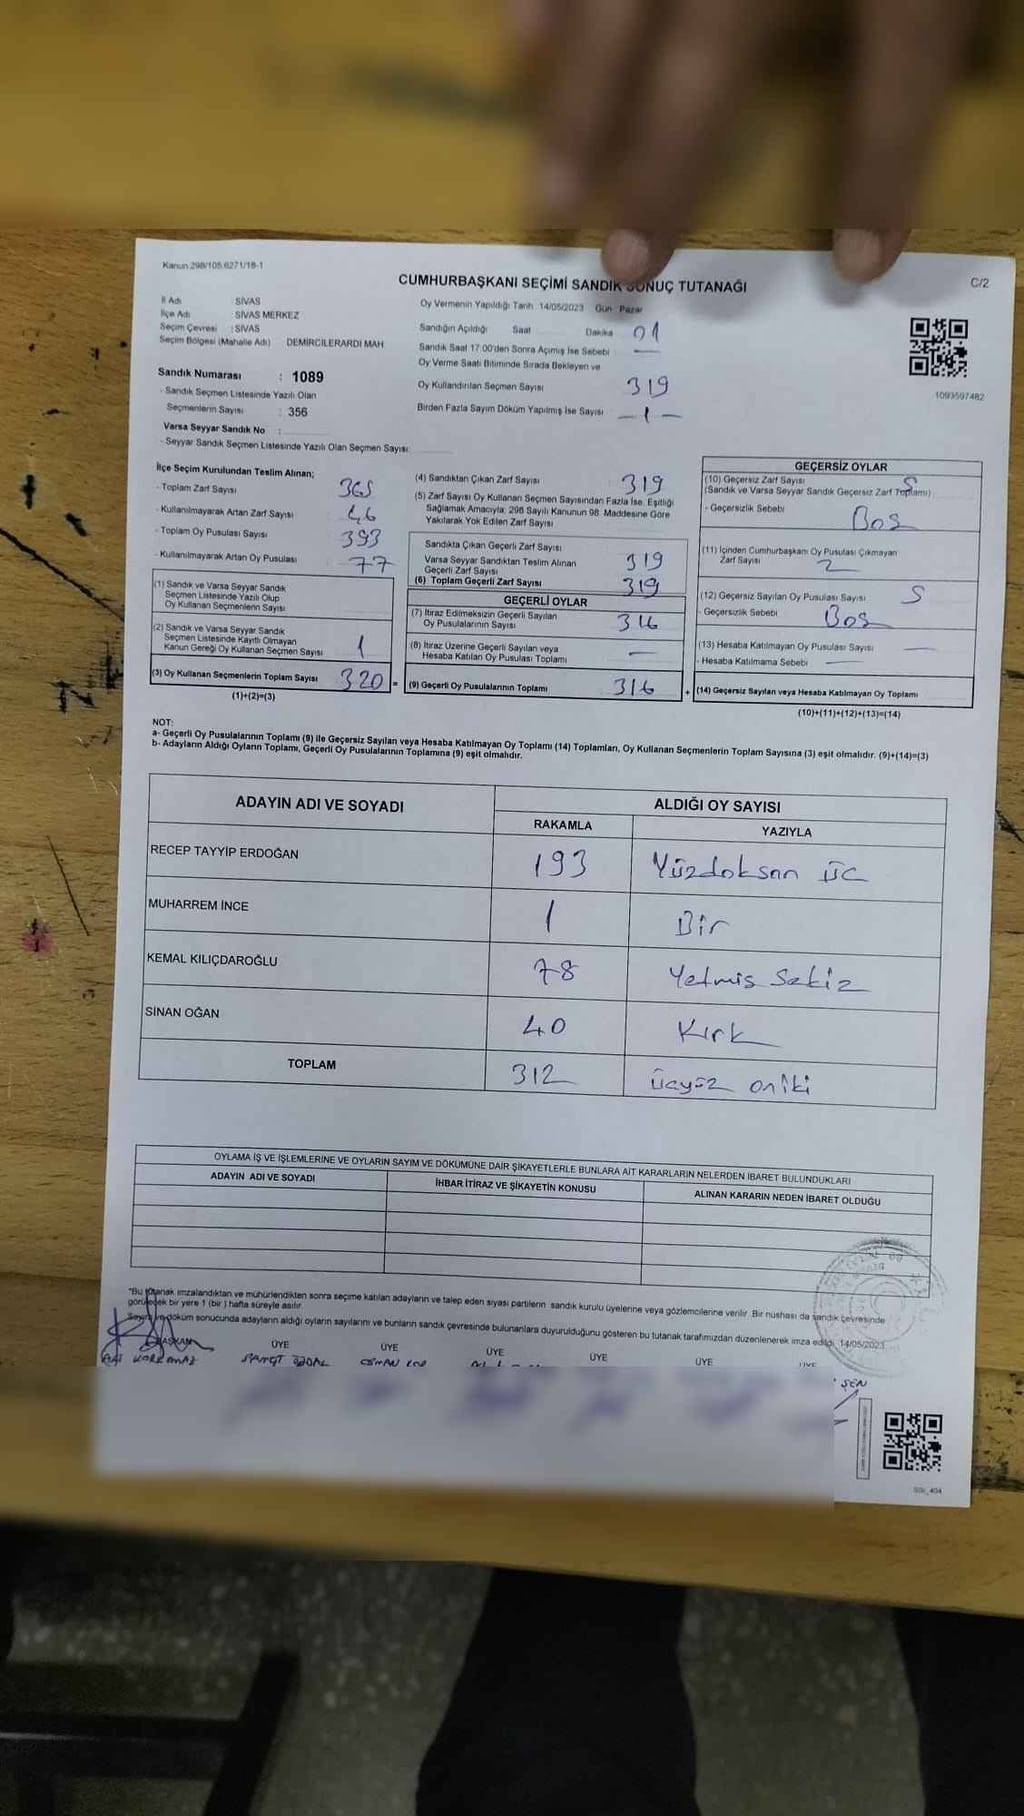 Kanun 298/105 6271/18-1
CUMHURBAŞKANI SEÇİMİ SANDIK SONUÇ TUTANAĞI
C/2
İl Adı SİVAS
İlçe Adı SİVAS MERKEZ
Seçim Çevresi : SİVAS
Seçim Bölgesi (Mahalle Adı) DEMİRCİLERARDI MAH
Sandık Numarası : 1089
- Sandık Seçmen Listesinde Yazılı Olan
Seçmenlerin Sayısı : 356
Varsa Seyyar Sandık No :
- Seyyar Sandık Seçmen Listesinde Yazılı Olan Seçmen Sayısı:
Oy Vermenin Yapıldığı Tarih: 14/05/2023 Gün : Pazar
Sandığın Açıldığı Saat Dakika 01
Sandık Saat 17:00'den Sonra Açılmış İse Sebebi —
Oy Verme Saati Bitiminde Sırada Bekleyen ve
Oy Kullandırılan Seçmen Sayısı 319
Birden Fazla Sayım Döküm Yapılmış İse Sayısı — 1 —
1093597482
İlçe Seçim Kurulundan Teslim Alınan;
- Toplam Zarf Sayısı 365
- Kullanılmayarak Artan Zarf Sayısı 46
- Toplam Oy Pusulası Sayısı 393
- Kullanılmayarak Artan Oy Pusulası 77
(1) Sandık ve Varsa Seyyar Sandık
Seçmen Listesinde Yazılı Olup
Oy Kullanan Seçmenlerin Sayısı
(2) Sandık ve Varsa Seyyar Sandık
Seçmen Listesinde Kayıtlı Olmayan
Kanun Gereği Oy Kullanan Seçmen Sayısı 1
(3) Oy Kullanan Seçmenlerin Toplam Sayısı 320
(1)+(2)=(3)
(4) Sandıktan Çıkan Zarf Sayısı 319
(5) Zarf Sayısı Oy Kullanan Seçmen Sayısından Fazla İse, Eşitliği
Sağlamak Amacıyla; 298 Sayılı Kanunun 98. Maddesine Göre
Yakılarak Yok Edilen Zarf Sayısı
Sandıkta Çıkan Geçerli Zarf Sayısı
Varsa Seyyar Sandıktan Teslim Alınan
Geçerli Zarf Sayısı 319
(6) Toplam Geçerli Zarf Sayısı 319
GEÇERLİ OYLAR
(7) İtiraz Edilmeksizin Geçerli Sayılan
Oy Pusulalarının Sayısı 316
(8) İtiraz Üzerine Geçerli Sayılan ve
Hesaba Katılan Oy Pusulası Toplamı —
(9) Geçerli Oy Pusulalarının Toplamı 316
GEÇERSİZ OYLAR
(10) Geçersiz Zarf Sayısı 5
(Sandık ve Varsa Seyyar Sandık Geçersiz Zarf Toplamı)
- Geçersizlik Sebebi Boş
(11) İçinden Cumhurbaşkanı Oy Pusulası Çıkmayan
Zarf Sayısı 2
(12) Geçersiz Sayılan Oy Pusulası Sayısı 5
- Geçersizlik Sebebi Boş
(13) Hesaba Katılmayan Oy Pusulası Sayısı —
- Hesaba Katılmama Sebebi —
(14) Geçersiz Sayılan veya Hesaba Katılmayan Oy Toplamı
(10)+(11)+(12)+(13)=(14)
NOT:
a- Geçerli Oy Pusulalarının Toplamı (9) ile Geçersiz Sayılan veya Hesaba Katılmayan Oy Toplamı (14) Toplamları, Oy Kullanan Seçmenlerin Toplam Sayısına (3) eşit olmalıdır. (9)+(14)=(3)
b- Adayların Aldığı Oyların Toplamı, Geçerli Oy Pusulalarının Toplamına (9) eşit olmalıdır.
ADAYIN ADI VE SOYADI ALDIĞI OY SAYISI
RAKAMLA YAZIYLA
RECEP TAYYİP ERDOĞAN 193 Yüzdoksan üç
MUHARREM İNCE 1 Bir
KEMAL KILIÇDAROĞLU 78 Yetmiş Sekiz
SİNAN OĞAN 40 Kırk
TOPLAM 312 üçyüz oniki
OYLAMA İŞ VE İŞLEMLERİNE VE OYLARIN SAYIM VE DÖKÜMÜNE DAİR ŞİKAYETLERLE BUNLARA AİT KARARLARIN NELERDEN İBARET BULUNDUKLARI
ADAYIN ADI VE SOYADI İHBAR İTİRAZ VE ŞİKAYETİN KONUSU ALINAN KARARIN NEDEN İBARET OLDUĞU
*Bu tutanak imzalandıktan ve mühürlendikten sonra seçime katılan adayların ve talep eden siyasi partilerin sandık kurulu üyelerine veya gözlemcilerine verilir. Bir nüshası da sandık çevresinde
görülecek bir yere 1 (bir) hafta süreyle asılır.
Sayım ve döküm sonucunda adayların aldığı oyların sayılarını ve bunların sandık çevresinde bulunanlara duyurulduğunu gösteren bu tutanak tarafımızdan düzenlenerek imza edildi. 14/05/2023
BAŞKAN ÜYE ÜYE ÜYE ÜYE ÜYE ÜYE
ŞEN